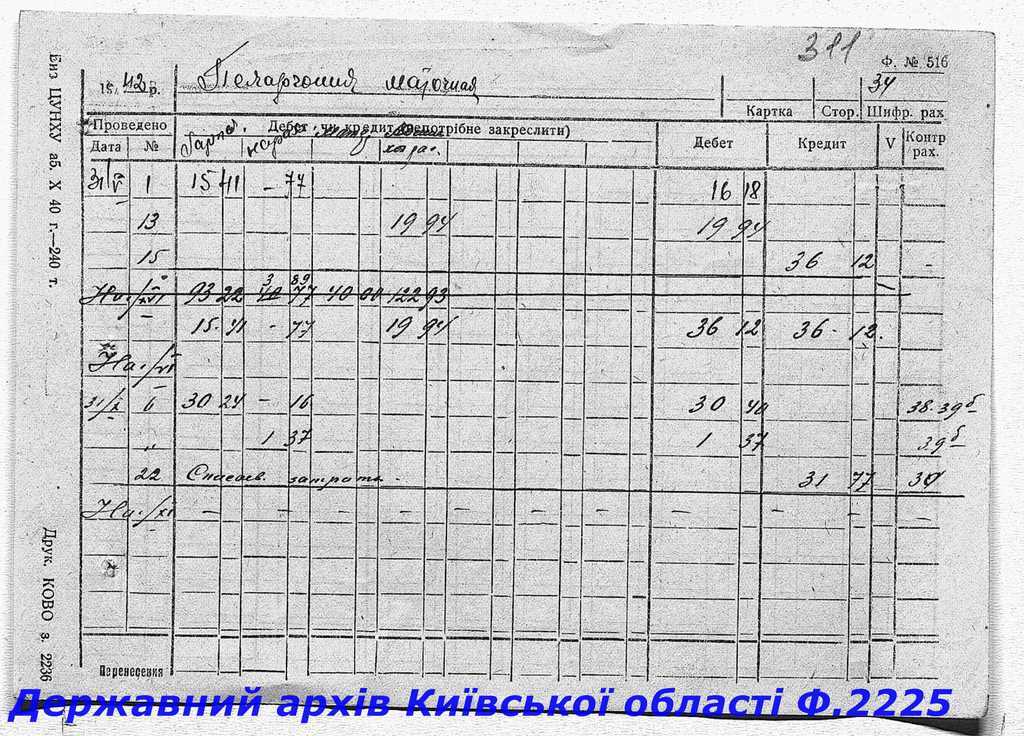 311
Ф. № 516
194 42 р. Пеларгония маточная 34
Картка Стор. Шифр. рах
Проведено Дебет чи кредит (непотрібне закреслити) Дебет Кредит V Контр рах.
Дата №
31/V 1 15 41 – 77 16 18
13 19 94 19 94
15 36 12
На 1/VI 93 22 3 89 40 77 40 00 122 93
15 41 – 77 19 94 36 12 36 12
На 1/VI
31/X 6 30 24 – 16 30 40 38-39б
„ 1 37 1 37 39б
22 Списов. затраты 31 77 34
На 1/XI – – – – – – – – – –
Перенесення
Биз ЦУНХУ аб. X 40 г.—240 т.
Друк. КОВО з. 2236
Державний архів Київської області Ф.2225